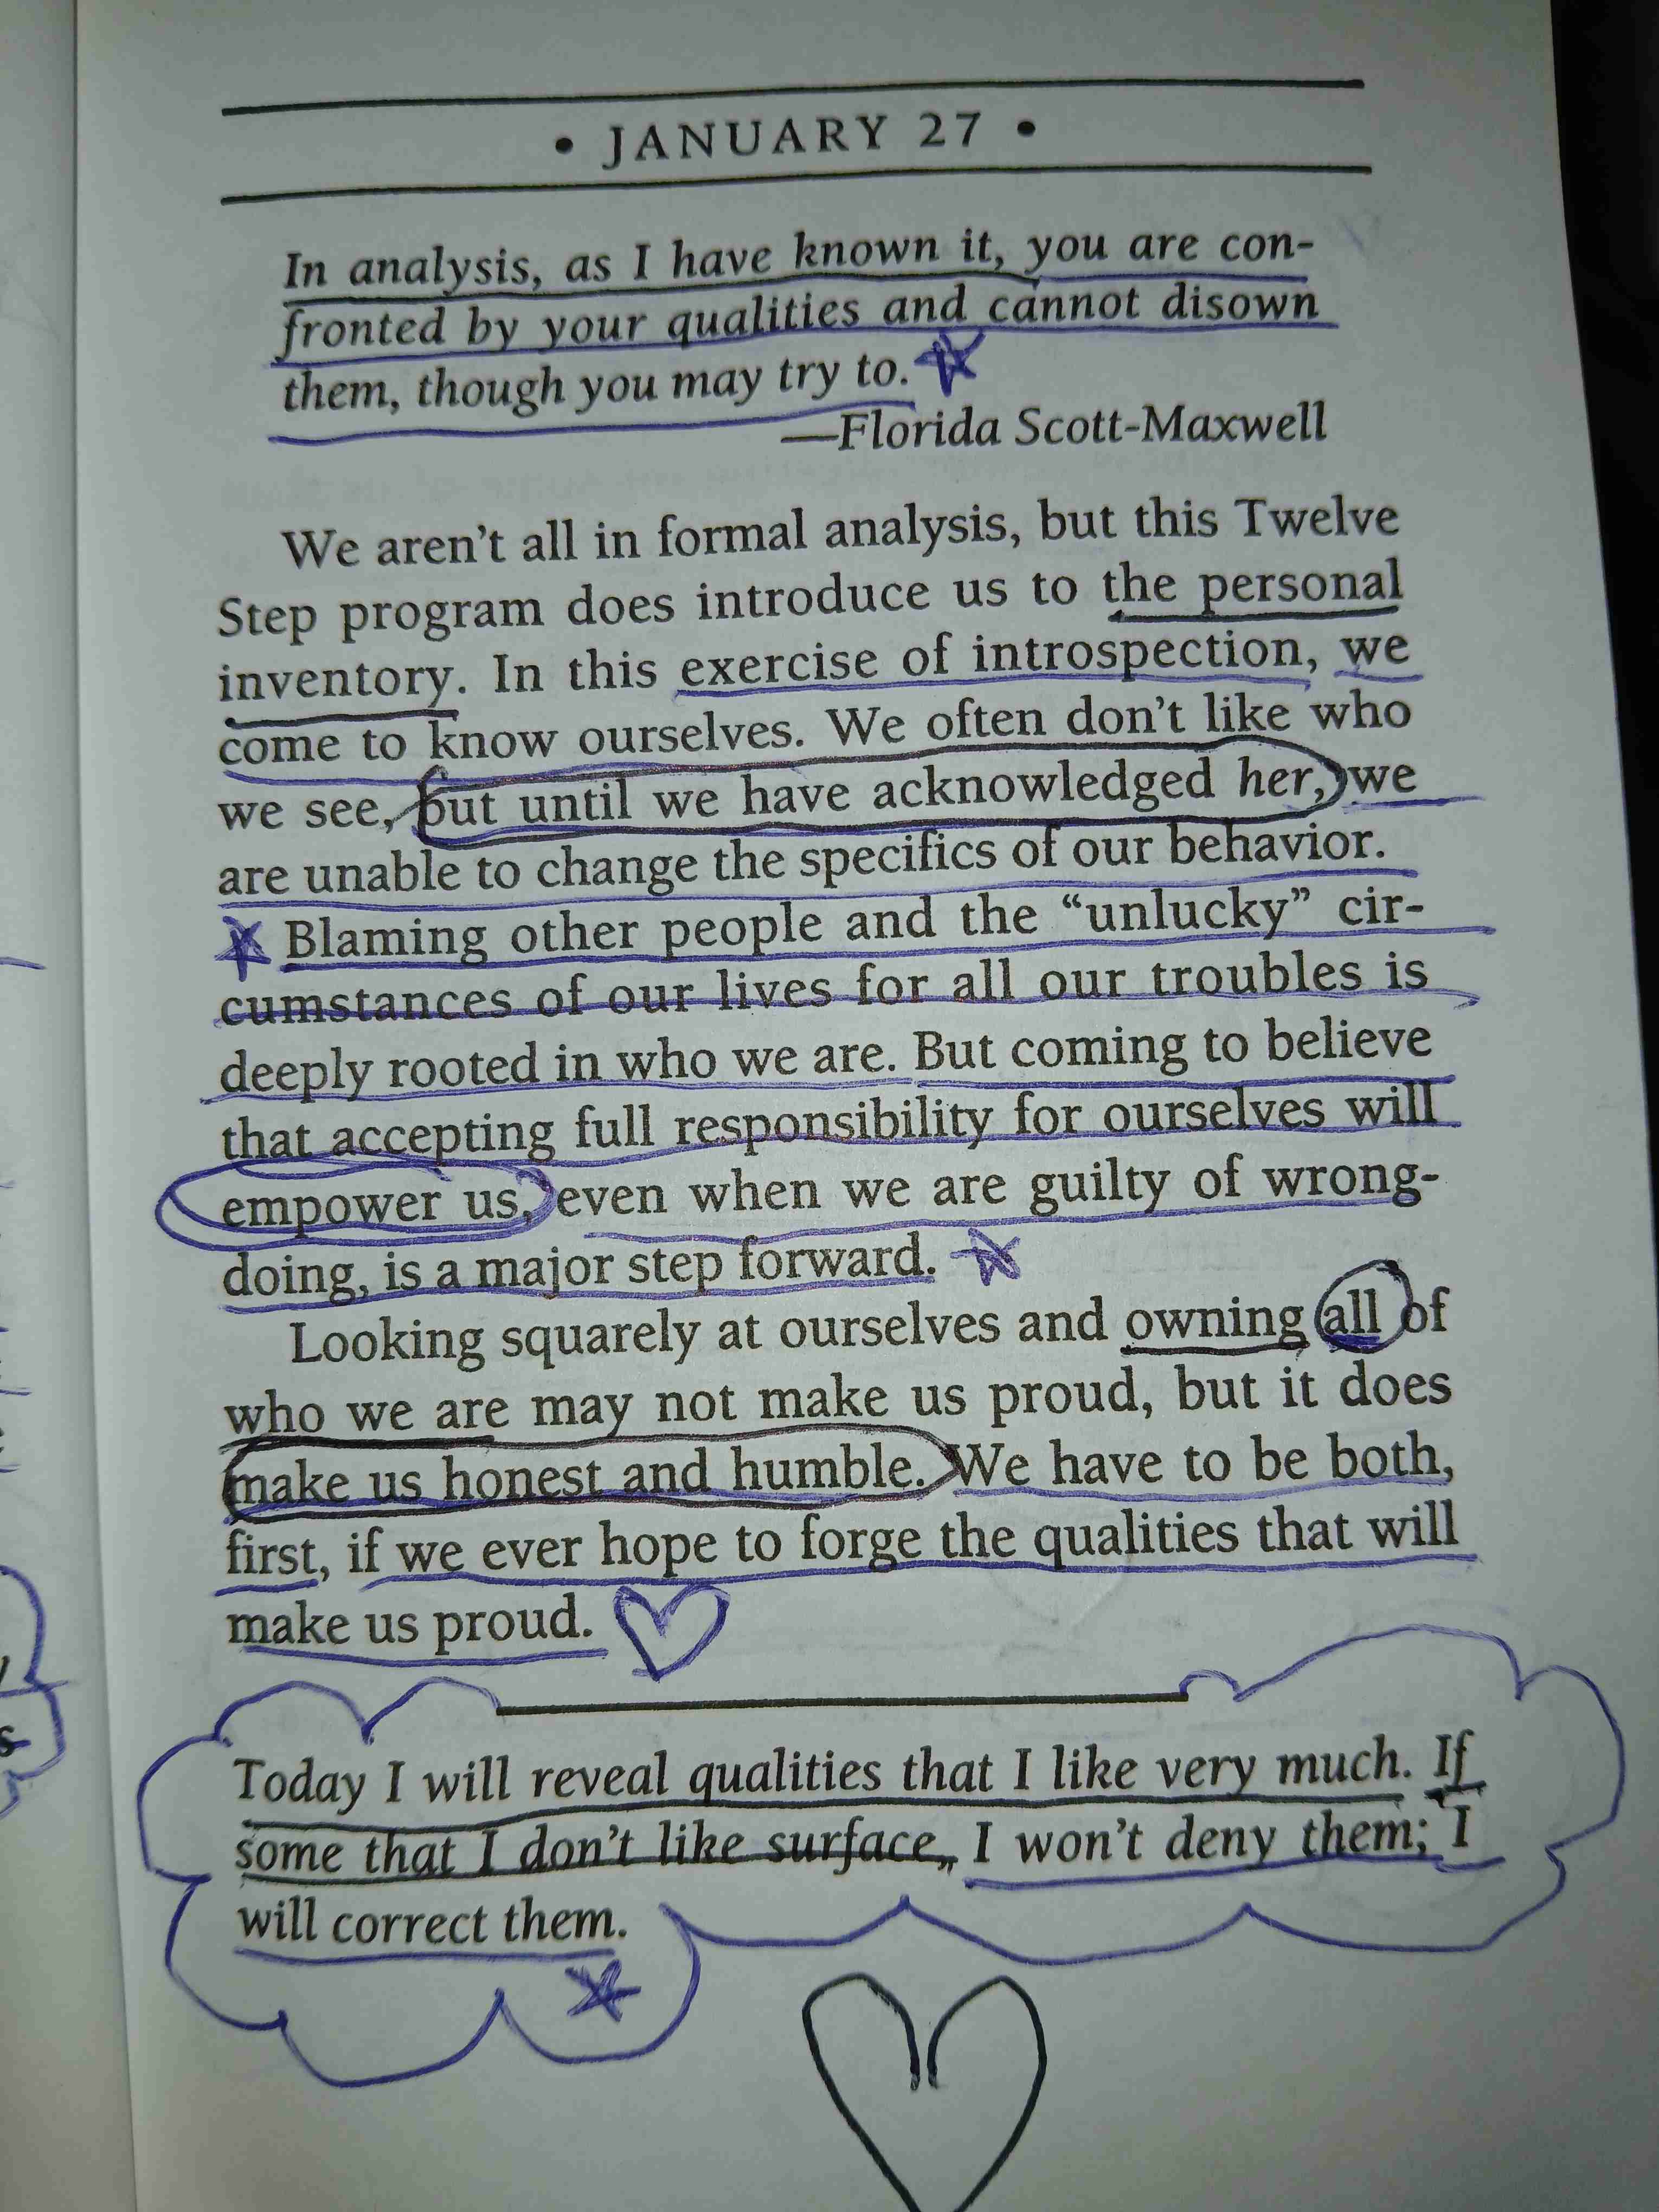 • JANUARY 27 •
In analysis, as I have known it, you are con-
fronted by your qualities and cannot disown
them, though you may try to.
—Florida Scott-Maxwell
We aren't all in formal analysis, but this Twelve
Step program does introduce us to the personal
inventory. In this exercise of introspection, we
come to know ourselves. We often don't like who
we see, but until we have acknowledged her, we
are unable to change the specifics of our behavior.
Blaming other people and the “unlucky” cir-
cumstances of our lives for all our troubles is
deeply rooted in who we are. But coming to believe
that accepting full responsibility for ourselves will
empower us, even when we are guilty of wrong-
doing, is a major step forward.
Looking squarely at ourselves and owning all of
who we are may not make us proud, but it does
make us honest and humble. We have to be both,
first, if we ever hope to forge the qualities that will
make us proud.
Today I will reveal qualities that I like very much. If
some that I don't like surface, I won't deny them; I
will correct them.